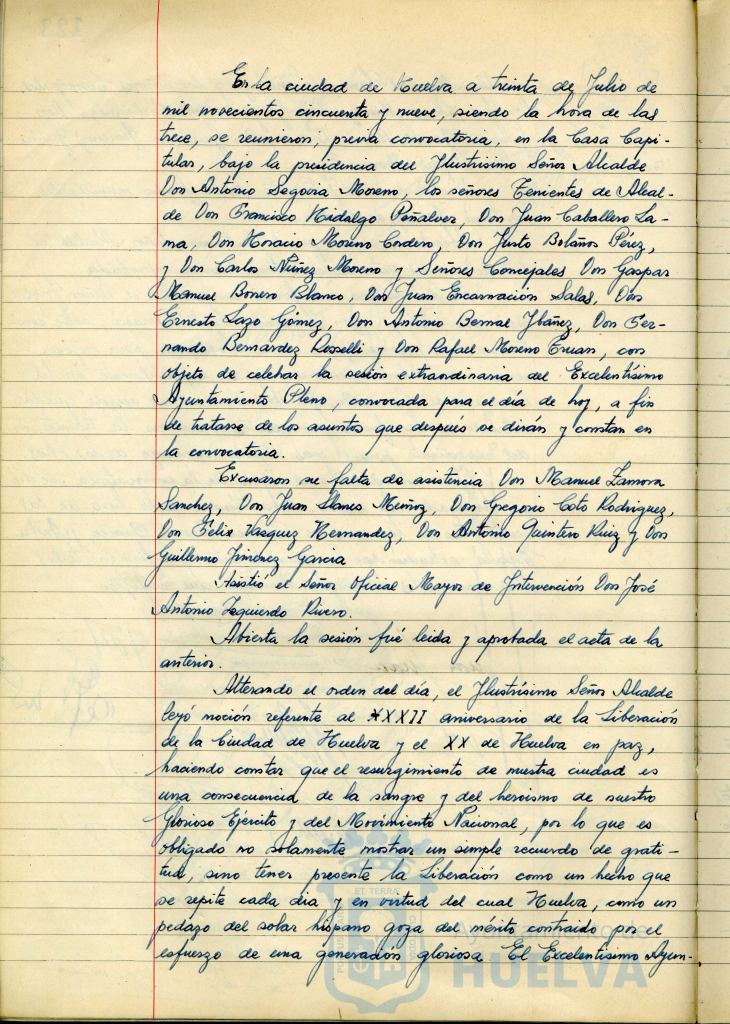 En la ciudad de Huelva a treinta de Julio de
mil novecientos cincuenta y nueve, siendo la hora de las
trece, se reunieron, previa convocatoria, en la Casa Capi-
tular, bajo la presidencia del Ilustrisimo Señor Alcalde
Don Antonio Segovia Moreno, los señores Tenientes de Alcal-
de Don Francisco Hidalgo Peñalver, Don Juan Caballero La-
ma, Don Horacio Moreno Cordero, Don Justo Bolaños Pérez,
y Don Carlos Nuñez Moreno y Señores Concejales Don Gaspar
Manuel Bonero Blanco, Don Juan Encarnación Salas, Don
Ernesto Lazo Gómez, Don Antonio Bernal Ybañez, Don Fer-
nando Bernardez Rosselli y Don Rafael Moreno Eruan, con
objeto de celebrar la sesión extraordinaria del Excelentísimo
Ayuntamiento Pleno, convocada para el día de hoy, a fin
de tratarse de los asuntos que después se dirán y constan en
la convocatoria.
Excusaron su falta de asistencia Don Manuel Zamora
Sanchez, Don Juan Llanes Muñoz, Don Gregorio Coto Rodriguez,
Don Félix Vasquez Hernandez, Don Antonio Quintero Ruiz y Don
Guillermo Jimenez Garcia
Asistió el Señor Oficial Mayor de Intervención Don José
Antonio Izquierdo Rivero.
Abierta la sesión fué leida y aprobada el acta de la
anterior.
Alterando el orden del día, el Ilustrísimo Señor Alcalde
leyó moción referente al XXII aniversario de la Liberación
de la Ciudad de Huelva y el XX de Huelva en paz,
haciendo constar que el resurgimiento de nuestra ciudad es
una consecuencia de la sangre y del heroismo de nuestro
Glorioso Ejército y del Movimiento Nacional, por lo que es
obligado no solamente mostrar un simple recuerdo de grati-
tud, sino tener presente la Liberación como un hecho que
se repite cada dia y en virtud del cual Huelva, como un
pedazo del solar hispano goza del mérito contraido por el
esfuerzo de una generación gloriosa. El Excelentisimo Ayun-
HUELVA